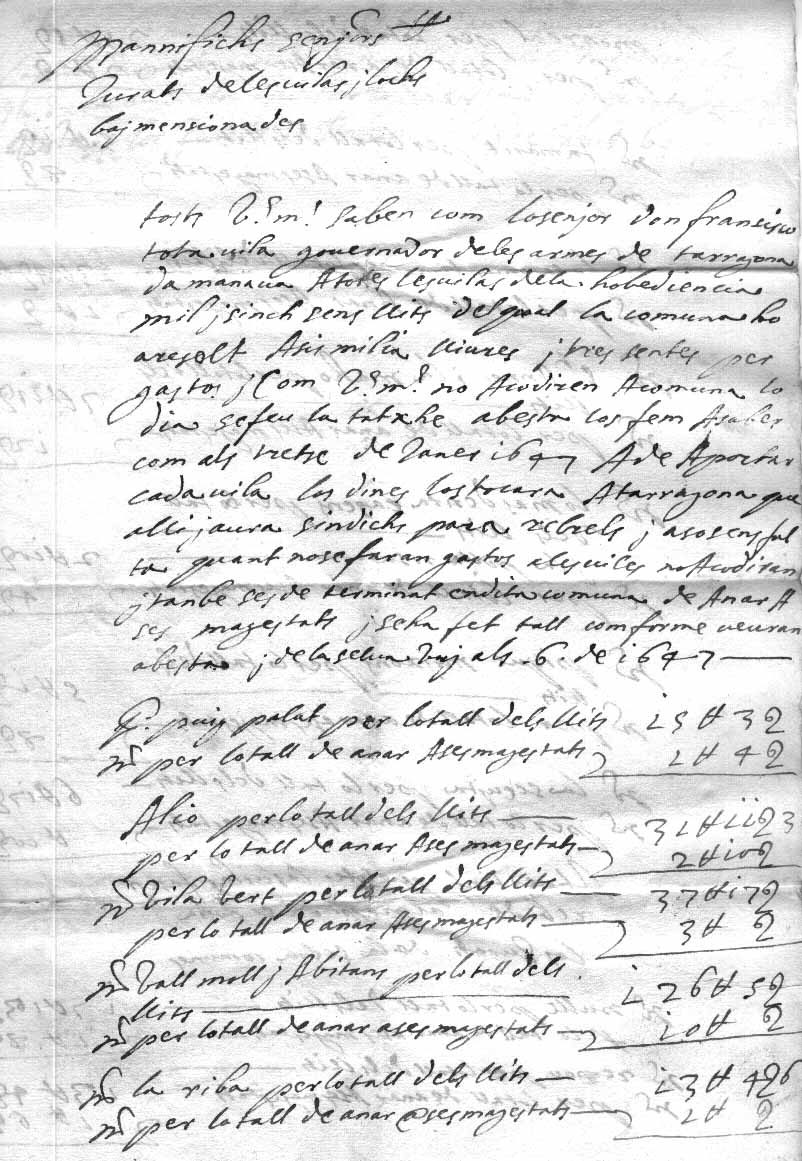 Mannifichs senjors
Jurats de les vilas j lochs
baj mensionades
tots V.s m.s saben com lo senjor don fransisco
tota vila governador de les armes de tarragona
damanava A totes les vilas de la hobediencia
mil j sinch sens llits del qual la comuna ho
aresolt A sis milia lliures j tres sentes per
gastos j Com V.s m.s no Acodiren A comuna lo
dia se feu la tatxe abestra los fem A saber
com als tretse de Janer 1647 A de Aportar
cada vila los dines los tocara A tarragona que
alli jaura sindichs para rebrels j aso sens fal
ta quant no se faran gastos a les viles no Acodiran
j tanbe ses determinat en dita comuna de Anar A
ses magestats j se ha fet tall comforme veuran
abestra j de la selva vuj als .6. de 1647
P.º puig palat per lo tall dels llits 15 ll 3 s
per lo tall de anar A ses magestats 1 ll 4 s
Alio per lo tall dels llits 31 ll 11 s 3
per lo tall de anar A ses magestats 2 ll 10 s
vila vert per lo tall dels llits 37 ll 17 s
per lo tall de anar A ses magestats 3 ll s
vall moll j Abitans per lo tall dels
llits 126 ll 5 s
per lo tall de anar a ses magestats 10 ll s
la riba per lo tall dels llits 13 ll 4 s 6
per lo tall de anar a ses magestats 1 ll s